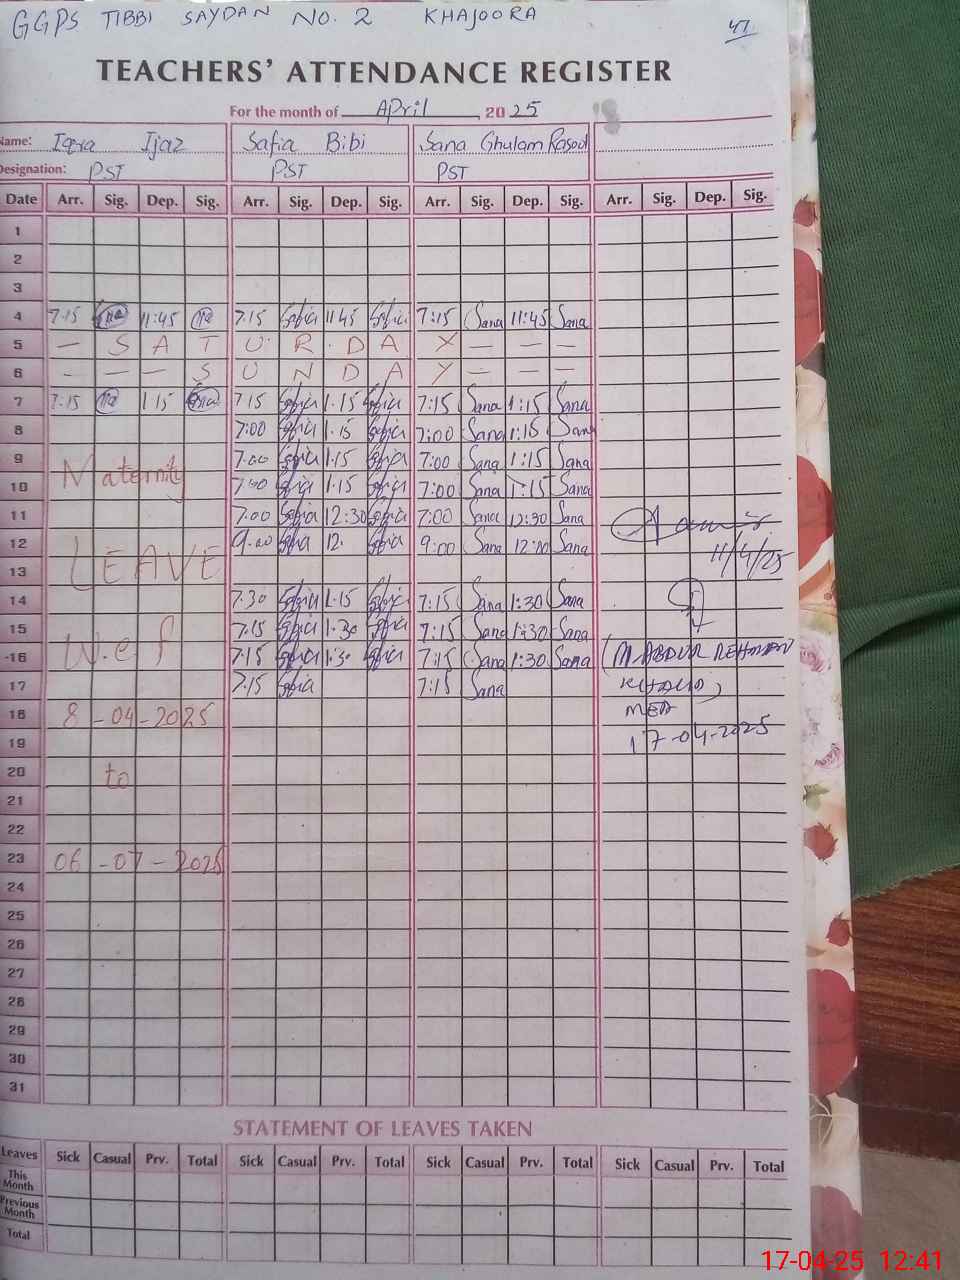 GGPS TIBBI SAYDAN NO. 2 KHAJOORA
47
TEACHERS' ATTENDANCE REGISTER
For the month of April, 2025
Name: Iqra Ijaz Safia Bibi Sana Ghulam Rasool
Designation: PST PST PST
Date Arr. Sig. Dep. Sig. Arr. Sig. Dep. Sig. Arr. Sig. Dep. Sig. Arr. Sig. Dep. Sig.
1
2
3
4 7:15 11:45 7:15 Safia 11:45 Safia 7:15 Sana 11:45 Sana
5 — S A T U R D A Y — — —
6 — — — S U N D A Y — — —
7 7:15 1:15 7:15 Safia 1:15 Safia 7:15 Sana 1:15 Sana
8 7:00 Safia 1:15 Safia 7:00 Sana 1:15 Sana
9 Maternity 7:00 Safia 1:15 Safia 7:00 Sana 1:15 Sana
10 7:00 Safia 1:15 Safia 7:00 Sana 1:15 Sana
11 7:00 Safia 12:30 Safia 7:00 Sana 12:30 Sana
12 LEAVE 9:00 Safia 12: Safia 9:00 Sana 12:00 Sana 11/4/25
13
14 7:30 Safia 1:15 Safia 7:15 Sana 1:30 Sana
15 W.e.f 7:15 Safia 1:30 Safia 7:15 Sana 1:30 Sana
16 7:15 Safia 1:30 Safia 7:15 Sana 1:30 Sana (M ABDUR REHMAN
17 7:15 Safia 7:15 Sana KHALID)
18 8-04-2025 MEA
19 17-04-2025
20 to
21
22
23 06-07-2025
24
25
26
27
28
29
30
31
STATEMENT OF LEAVES TAKEN
Leaves Sick Casual Prv. Total Sick Casual Prv. Total Sick Casual Prv. Total Sick Casual Prv. Total
This Month
Previous Month
Total
17-04-25 12:41